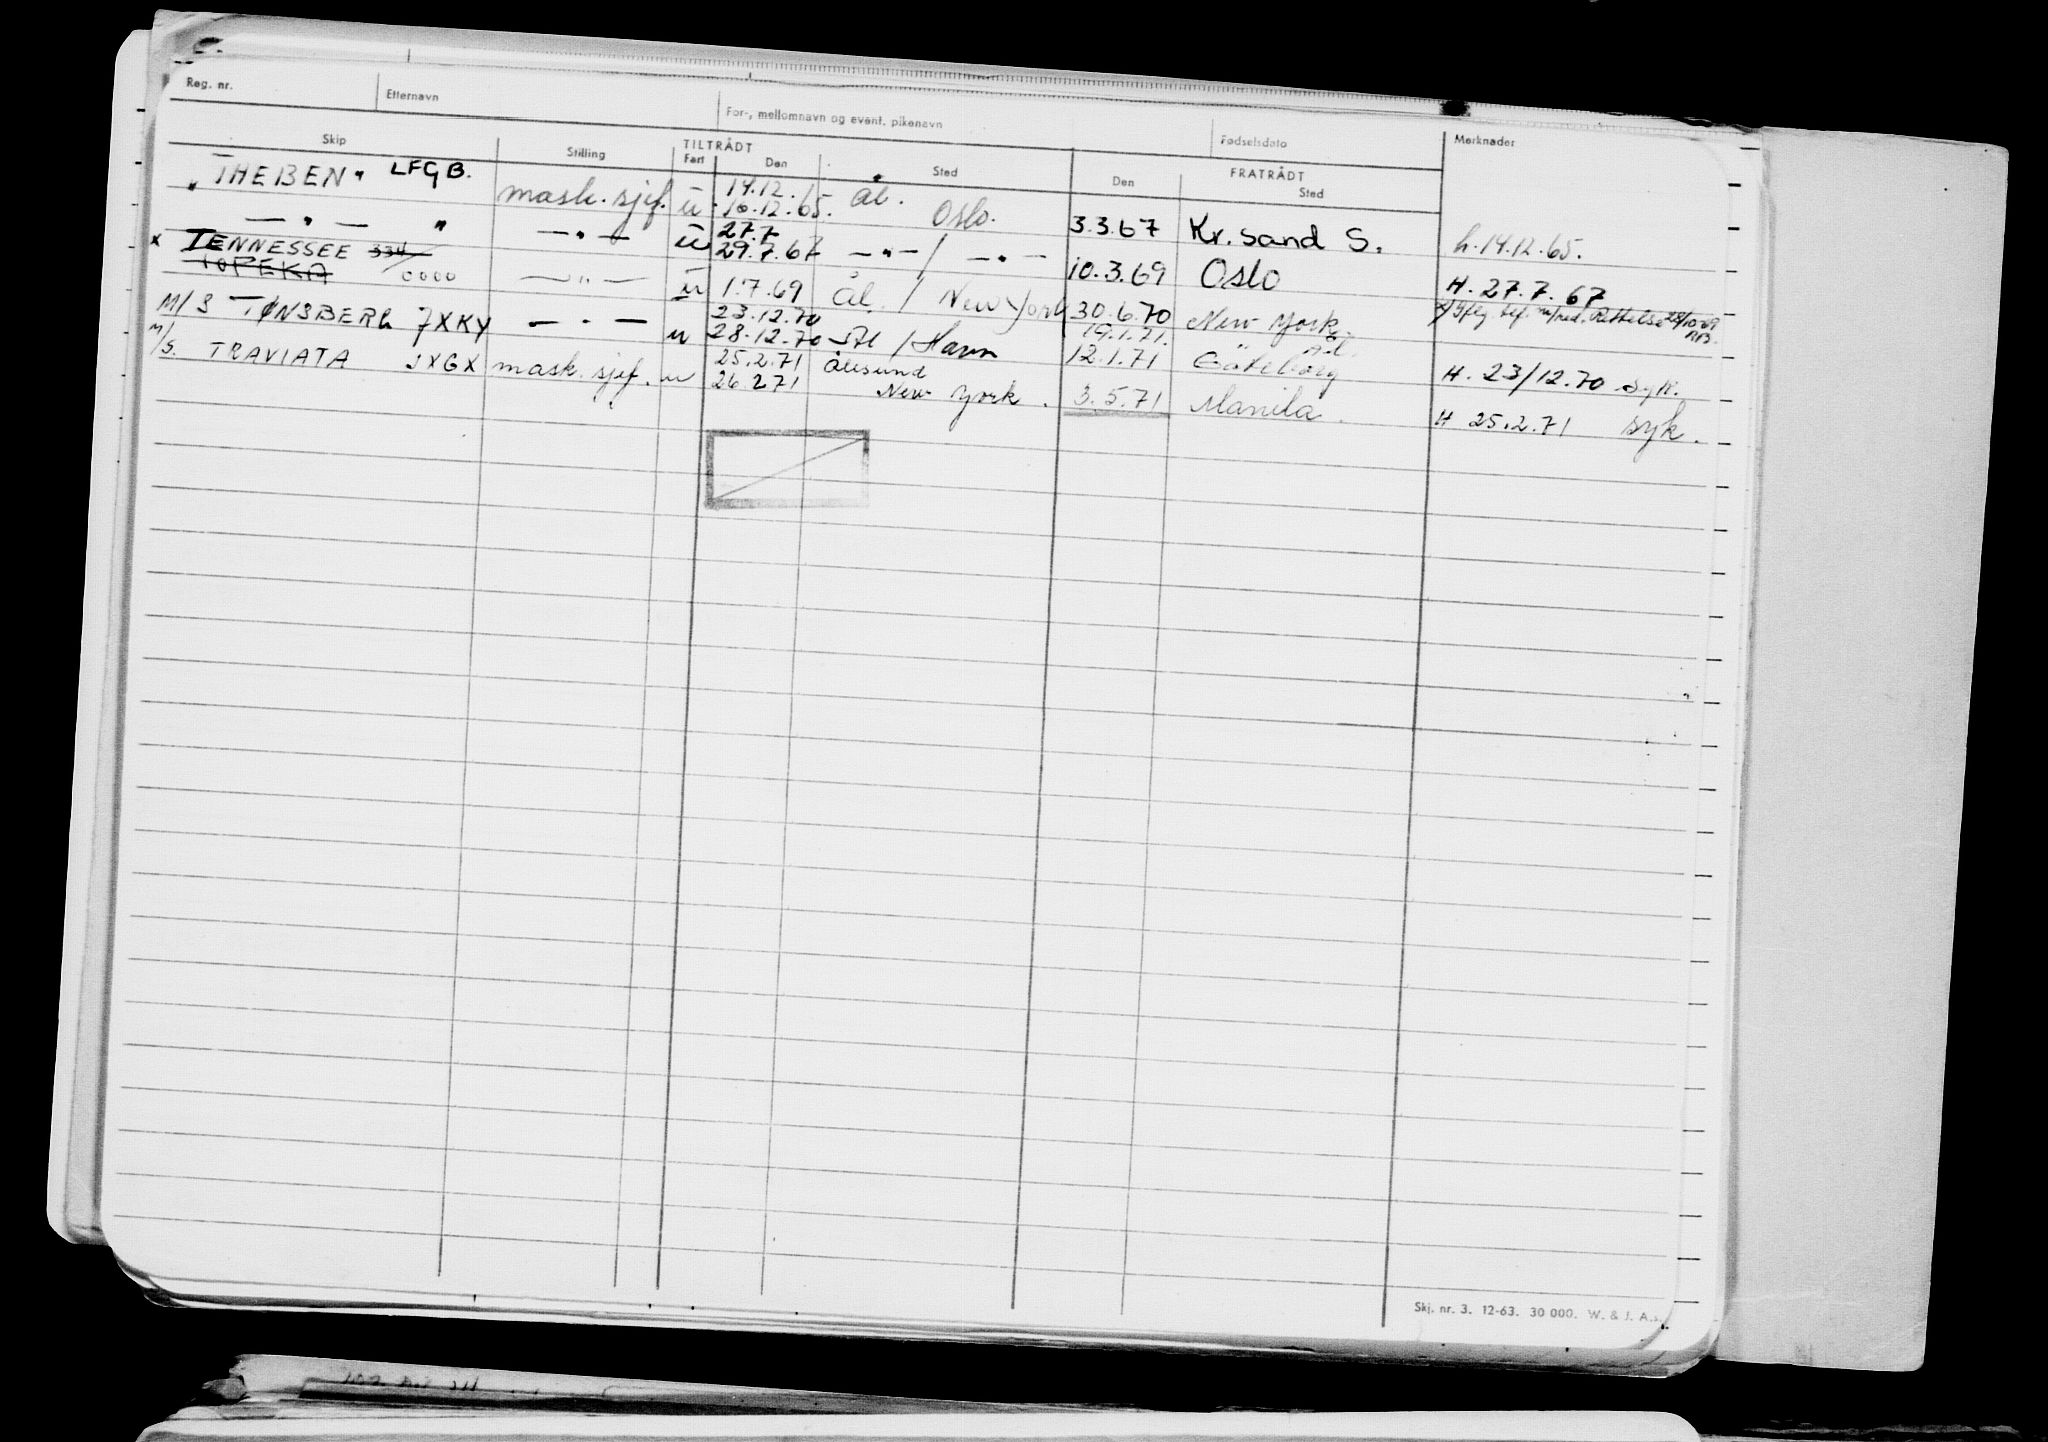 Reg. nr. Etternavn For-, mellomnavn og event. pikenavn Fødselsdato Merknader
Skip Stilling TILTRÅDT FRATRÅDT
Fart Den Sted Den Sted
"THEBEN" LFGB. mask. sjef. u 14.12. / 16.12.65. Ål. Oslo. 3.3.67 Kr. sand S. h. 14.12.65.
— " — " — " — u 27.7 29.7.67 — " — / — " — 10.3.69 Oslo H. 27.7.67
x TENNESSEE 334
TOPEKA 0000 — " — u 1.7.69 Ål. / New York 30.6.70 New York. Rettelse 28/10-69
M/S TØNSBERG JXKY — " — u 23.12.70 28.12.70 Ål / Havn 19.1.71. 12.1.71 Göteborg Ål. H. 23/12.70 syk.
M/S. TRAVIATA JXGX mask. sjef. u 25.2.71 26.2 71 Ålesund New York. 3.5.71 Manila. H 25.2.71 syk.
Skj. nr. 3. 12-63. 30 000. W. & J. A.s.